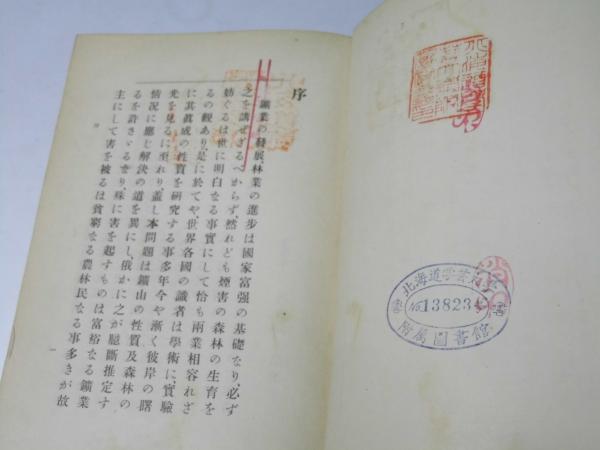 序
鑛業の發展、林業の進步は國家富强の基礎なり、必ず
之を講ぜざるべからず、然れども煙害の森林の生育を
妨ぐるは世に明白なる事實にして恰も兩業相容れざ
るの觀あり、是に於てや、世界各國の識者は學術に、實驗
に其眞成の性質を研究する事多年今や漸く彼岸の曙
光を見るに至れり、蓋し本問題は鑛山の性質及森林の
情況に應じ解決の道を異にし、俄かに之が臆斷推定す
るを許さゞるなり、殊に害を起すものは富裕なる鑛業
主にして害を被るは貧窮なる農林民なる事多きが故
一
北海道
No 13823
附属図書館